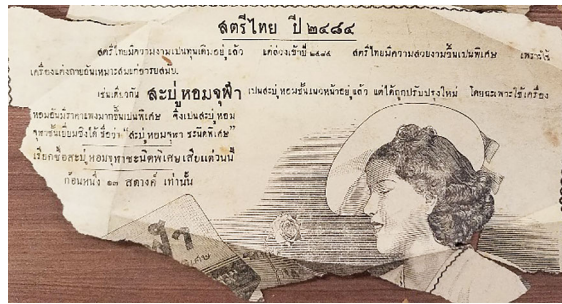 สตรีไทย ปี ๒๔๘๔
สตรีไทยมีความงามเปนทุนเดิมอยู่แล้ว แต่ล่วงเข้าปี ๒๔๘๔ สตรีไทยมีความสวยงามขึ้นเปนพิเศษ เพราะใช้
เครื่องแต่งกายอันเหมาะสมแก่อารยสมัย.
เช่นเดียวกัน สะบู่หอมจุฬา เปนสะบู่หอมชั้นแนวหน้าอยู่แล้ว แต่ได้ถูกปรับปรุงใหม่ โดยฉะเพาะใช้เครื่อง
หอมอันมีราคาแพงมากขึ้นเปนพิเศษ จึงเปนสะบู่หอม
จุฬาชั้นเยี่ยมซึ่งได้ชื่อว่า “สะบู่หอมจุฬา ชะนิดพิเศษ”
เรียกซื้อสะบู่หอมจุฬาชะนิดพิเศษเสียแต่วันนี้
ก้อนหนึ่ง ๑๓ สตางค์ เท่านั้น